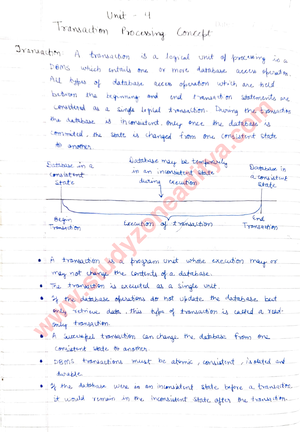 Unit - 4
Transaction Processing Concept
Transaction A transaction is a logical unit of processing in a
DBMS which entails one or more database access operation.
All types of database access operation which are held
between the beginning and end transaction statements are
considered as a single logical transaction. During the transaction
the database is inconsistent. Only once the database
commited, the state is changed from one consistent state
to another.
Database in a
consistent
state
Database may be temporarily
in an inconsistent state
during execution
Database in
a consistent
state.
Begin
Transaction
Execution of transaction
End
Transaction
• A transaction is a program unit whose execution may or
may not change the contents of a database.
• The transaction is executed as a single unit.
• If the database operations do not update the database but
only retrieve data. This type of transaction is called a read-
only transaction.
• A successful transaction can change the database from one
consistent state to another
• DBMS transactions must be atomic, consistent, isolated and
durable
• If the database were in an inconsistent state before a transaction
it would remain in the inconsistent state after the transaction.
www.studyzoneaditya.com